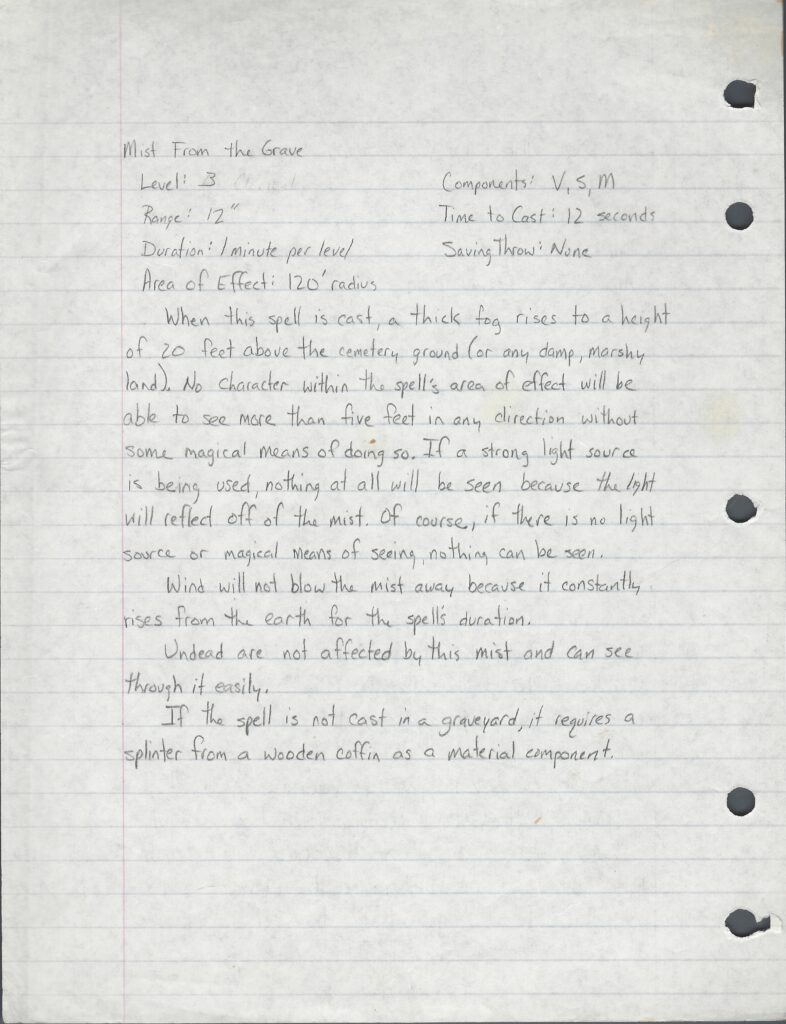 Mist From the Grave
Level: 3
Components: V, S, M
Range: 12"
Time to Cast: 12 seconds
Duration: 1 minute per level
Saving Throw: None
Area of Effect: 120' radius
When this spell is cast, a thick fog rises to a height
of 20 feet above the cemetery ground (or any damp, marshy
land). No character within the spell's area of effect will be
able to see more than five feet in any direction without
some magical means of doing so. If a strong light source
is being used, nothing at all will be seen because the light
will reflect off of the mist. Of course, if there is no light
source or magical means of seeing, nothing can be seen.
Wind will not blow the mist away because it constantly
rises from the earth for the spell's duration.
Undead are not affected by this mist and can see
through it easily.
If the spell is not cast in a graveyard, it requires a
splinter from a wooden coffin as a material component.